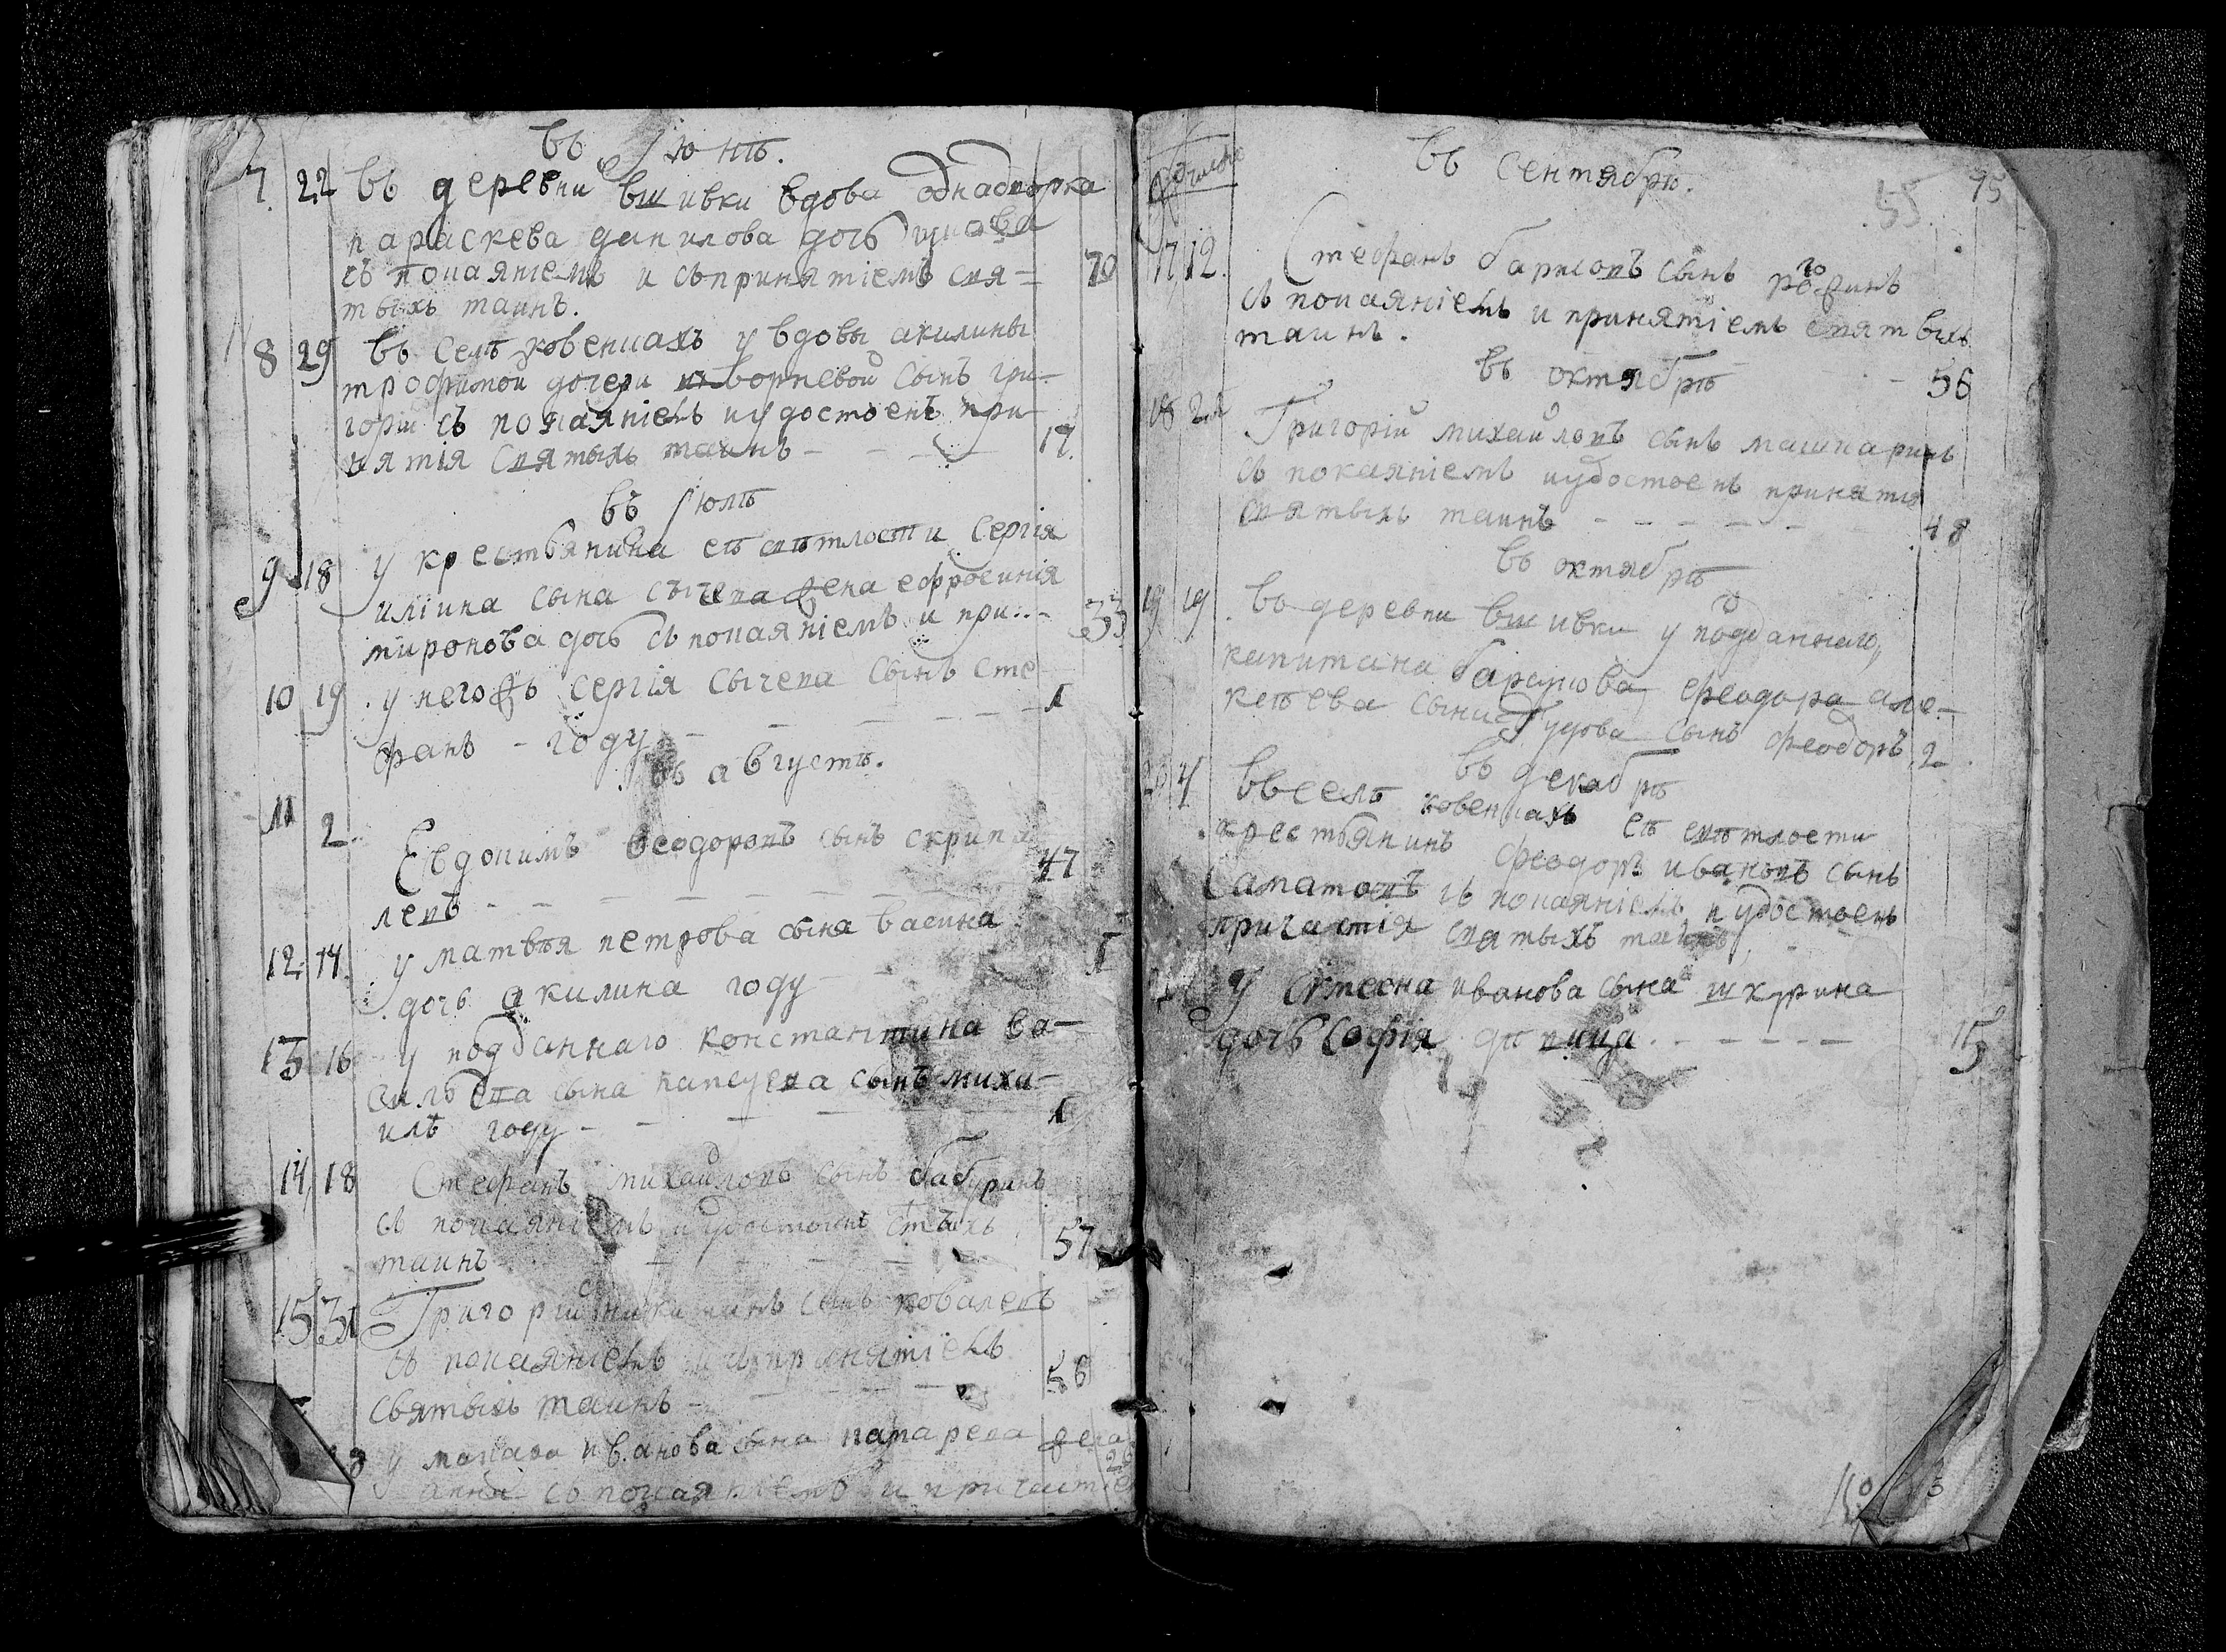 въ Iюнѣ.
7. 22 въ деревни вшивки вдова однадворка
параскева данилова дочь
съ покаянiемъ и съпринятiемъ свя-
тыхъ таинъ. 70
8 29 въ селѣ ковенкахъ у вдовы акилины
трофимой дочери сынъ гри-
горiи съ покаянiемъ иудостоенъ при
нятiя святыхъ таинъ - - - 17.
въ Iюлѣ
9 18 у крестьянина еѣ свѣтлости сергiя
илiина сына сычева жена ефросинiя
миронова дочь съ покаянiемъ и при... 33
10 19. у негожъ сергiя сычева сынъ сте
фанъ - году - - - - - 1
въ августѣ.
11 2 Евдокимъ веодоровъ сынъ скрипа
левъ - - - - - - 47
12. 14. у матвѣя петрова сына васина
дочь акилина году - - 1
13 16 у подданнаго константина ва-
сильева сына сынъ миха-
илъ году - - - - 1
14 18 Стефанъ михайловъ сынъ бабуринъ
съ покаянiемъ иудостоенъ стыхъ
таинъ - - - - - 57
15 31 Григорiй никитинъ сынъ ковалевъ
съ покаянiемъ и съ принятiемъ
святыхъ таинъ - - - - 56
у макара иванова сына жена
анна съ покаянiемъ и причастiе 26
въ сентябрѣ.
55. 75
число
17, 12. Стефанъ барисовъ сынъ
съ покаянiемъ и принятiемъ святыхъ
таинъ. - 56
въ октябрѣ
18 21 Григорiй михайловъ сынъ машкаринъ
съ покаянiемъ иудостоенъ принятiя
святыхъ таинъ - - - - - 48
въ октябрѣ
19 19. въ деревни вшивки у подданнаго,
капитана феодора але-
ксѣева сына сынъ феодоръ 2
въ декабрѣ
20 4 ввселѣ ковенкахъ еѣ свѣтлости
крестьянинъ феодоръ ивановъ сынъ
саматовъ съ покаянiемъ иудостоенъ
причастiя святыхъ таинъ.
у иванова сына шкурина
дочь софiя дѣвица. - - - - - 15